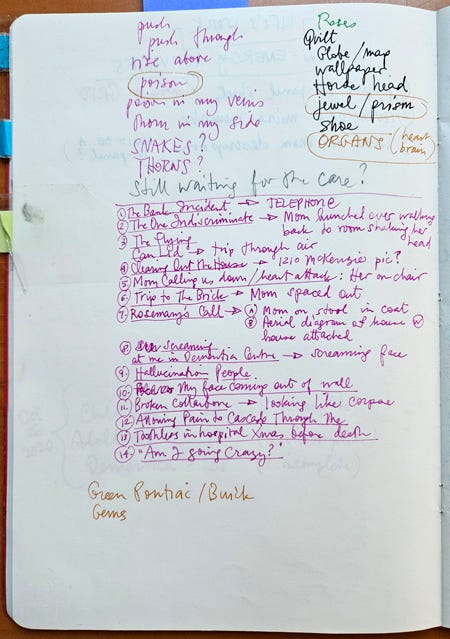 push
push through
rise above
poison
poison in my veins
thorn in my side
SNAKES?
THORNS?
Roses
Quilt
Globe/map
wallpaper
Horse head
jewel/prism
shoe
ORGANS (heart
brain)
Still waiting for the care?
① The Bank Incident → TELEPHONE
② The One Indiscriminate → Mom hunched over walking
back to room shaking her
head
③ The Flying
→ trip through air
④ Cleaning Out the House → 1210 McKenzie pic?
⑤ Mom Calling us down/heart attack: Her on chair
⑥ Trip to The Brick → Mom spaced out
⑦ Rosemary's Call → Ⓐ Mom on stool in coat
Ⓑ Aerial diagram of house W
house attached
⑧ screaming
at me in Dementia Centre → screaming face
⑨ Hallucination People
⑩ My face coming out of wall
⑪ Broken Collarbone → looking like corpse
⑫ Allowing Pain to Cascade Through Me
⑬ Toothless in hospital Xmas before death
⑭ "Am I going Crazy?"
Green Pontiac/Buick
Gems